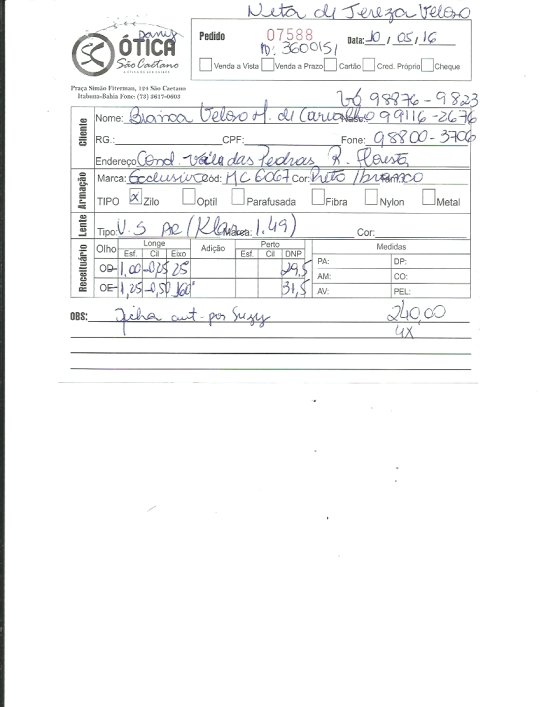 Neta de Tereza Veloso
Dany
SC ÓTICA
São Caetano
Pedido 07588 Data: 10 / 05 / 16
ID: 3600151
Venda a Vista Venda a Prazo Cartão Cred. Próprio Cheque
Praça Simão Fiterman, 124 São Caetano
Itabuna-Bahia Fone: (73) 3617-0603
Vó 98876-9823
Cliente
Nome: Bianca Veloso M. de Carvalho 99116-2676
RG.: CPF: Fone: 98800-3706
Endereço Cond. Vila das Pedras R. Floresta
Armação
Marca: Exclusive Cód: MC 6067 Cor: Preto / branco
TIPO x Zilo Optil Parafusada Fibra Nylon Metal
Lente
Tipo: V.S AR (Klar 1.49) Marca: Cor:
Receituário
Olho Longe Adição Perto Medidas
Esf. Cil Eixo Esf. Cil DNP
PA: DP:
OD -1,00 -0,25 25° 29,5
AM: CO:
OE -1,25 -0,50 160° 31,5
AV: PEL:
OBS: Ficha aut. por Suzy 240,00
4X